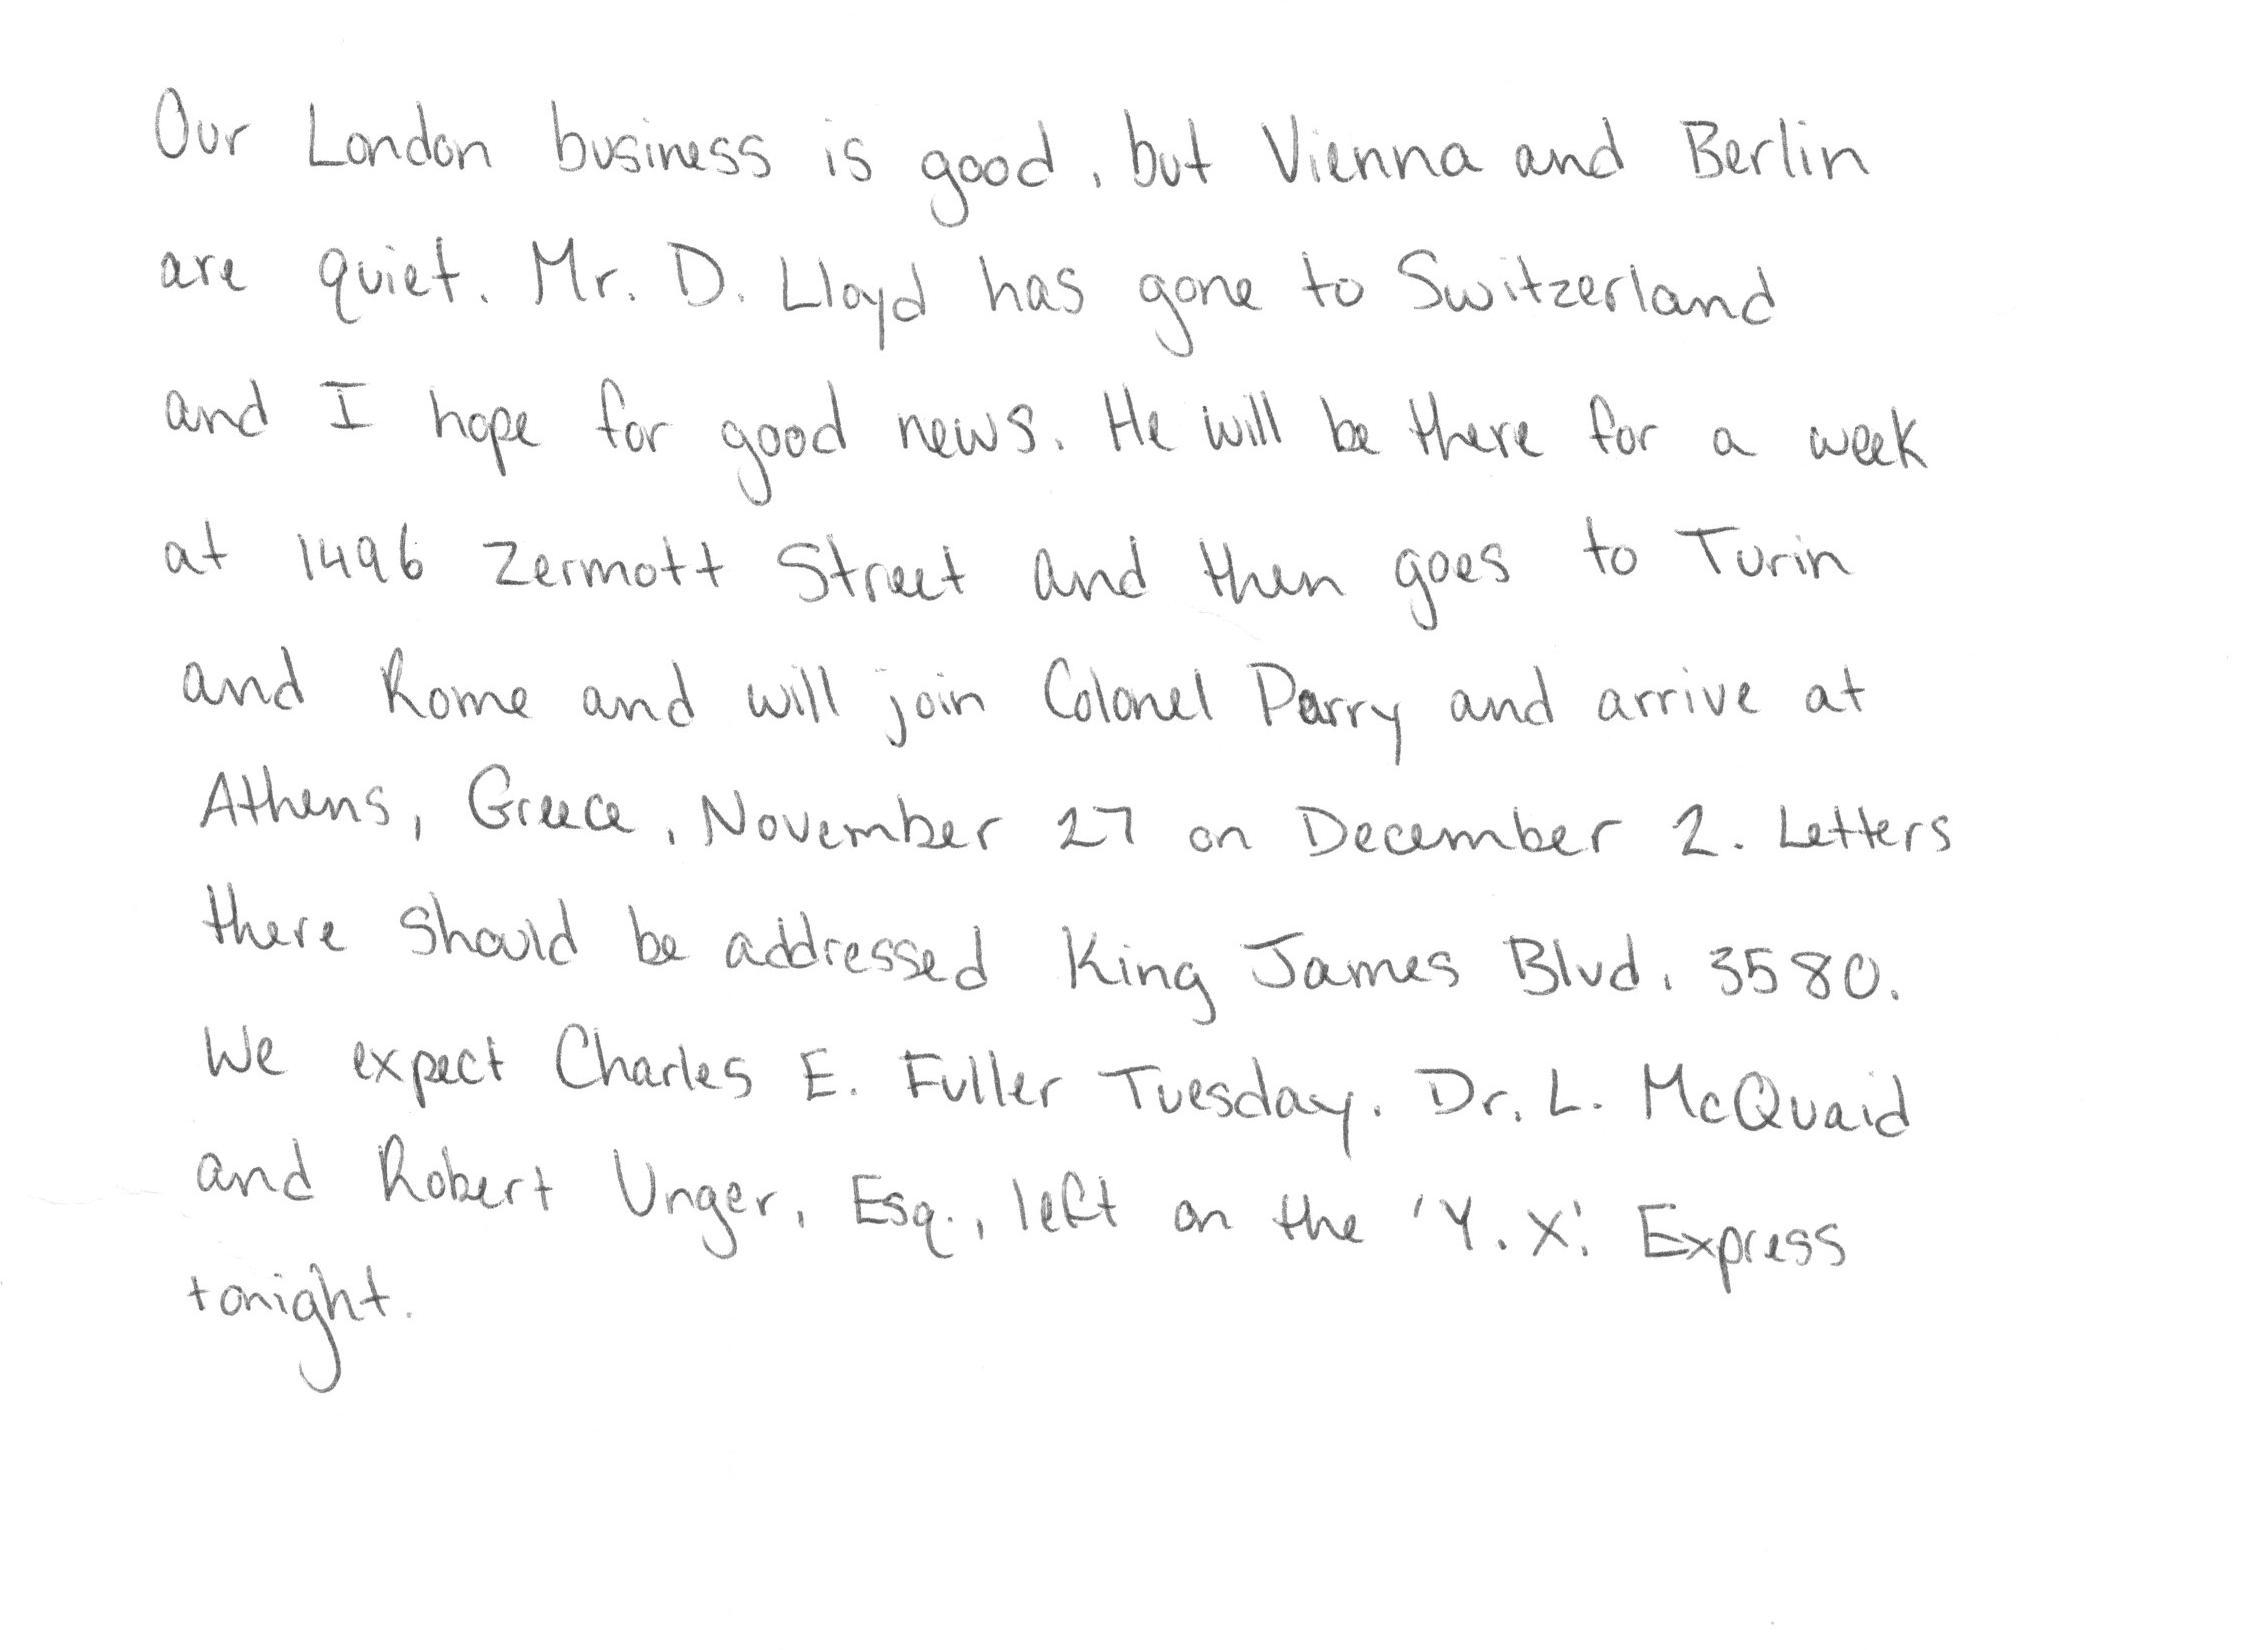 Our London business is good, but Vienna and Berlin
are quiet. Mr. D. Lloyd has gone to Switzerland
and I hope for good news. He will be there for a week
at 1496 Zermott Street and then goes to Turin
and Rome and will join Colonel Parry and arrive at
Athens, Greece, November 27 on December 2. Letters
there should be addressed King James Blvd. 3580.
We expect Charles E. Fuller Tuesday. Dr. L. McQuaid
and Robert Unger, Esq., left on the 'Y. X.' Express
tonight.